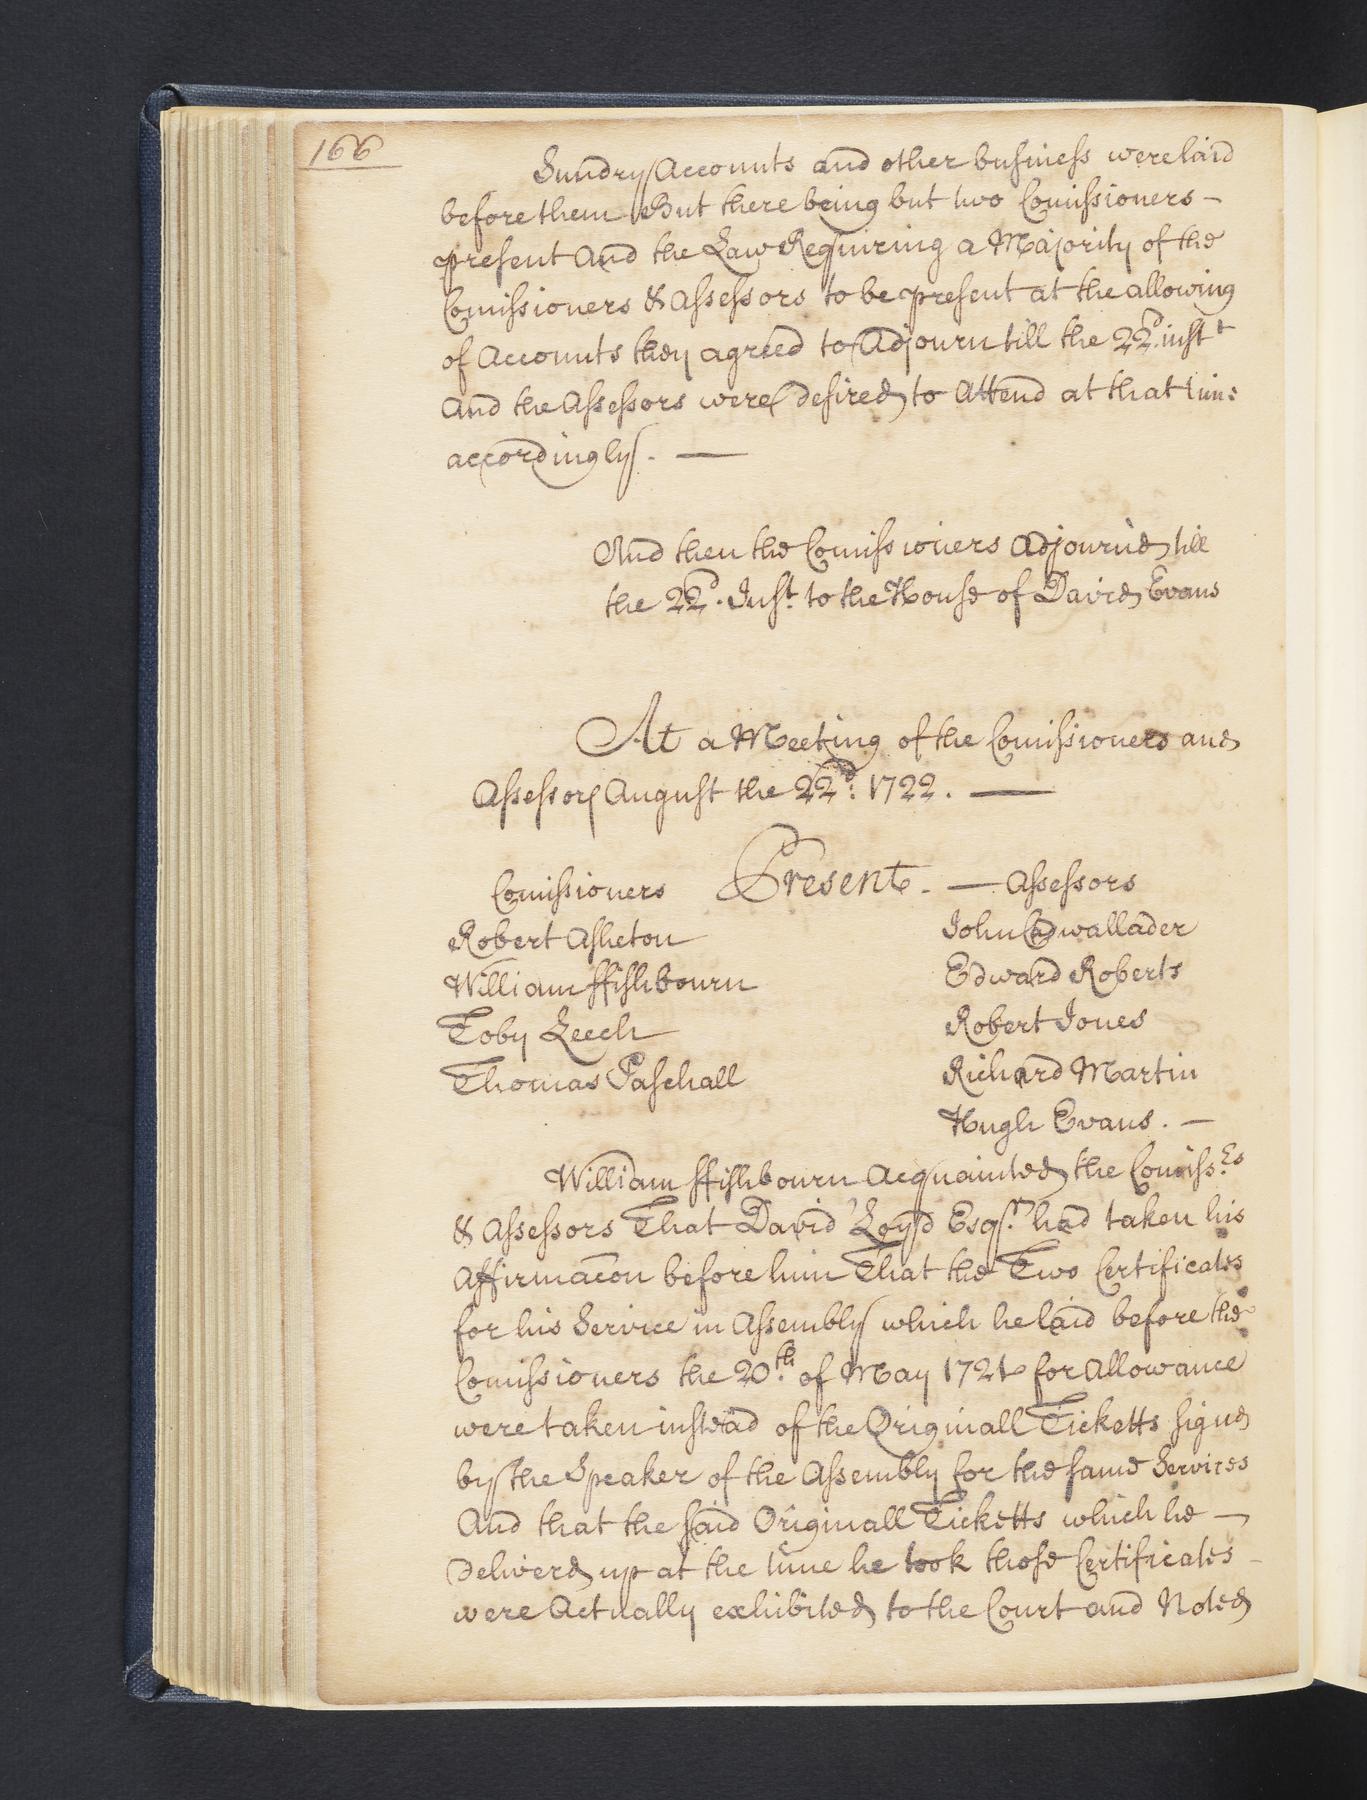 166
Sundry Accounts and other business were laid
before them But there being but two Comissioners -
present And the Law Requiring a Majority of the
Comissioners & Assessors to be present at the allowing
of Accounts they agreed to Adjourn till the 22d. inst
And the Assessors were desired to Attend at that time
accordingly. —
And then the Comissioners Adjourn'd till
the 22d. Inst. to the House of David Evans
At a Meeting of the Comissioners and
Assessors August the 22d: 1722. —
Comissioners Present. — Assessors
Robert Asheton John Cadwallader
William ffishbourn Edward Roberts
Toby Leech Robert Jones
Thomas Paschall Richard Martin
Hugh Evans. —
William ffishbourn Acquainted the Comiss.rs
& Assessors That David Loyd Esqr. had taken his
Affirmacon before him That the Two Certificates
for his Service in Assembly which he laid before the
Comissioners the 20th. of May 1721 for Allowance
were taken instead of the Originall Ticketts signd
by the Speaker of the Assembly for the same Services
And that the said Originall Ticketts which he —
Deliverd up at the time he took those Certificates -
were Actually exhibited to the Court and Noted